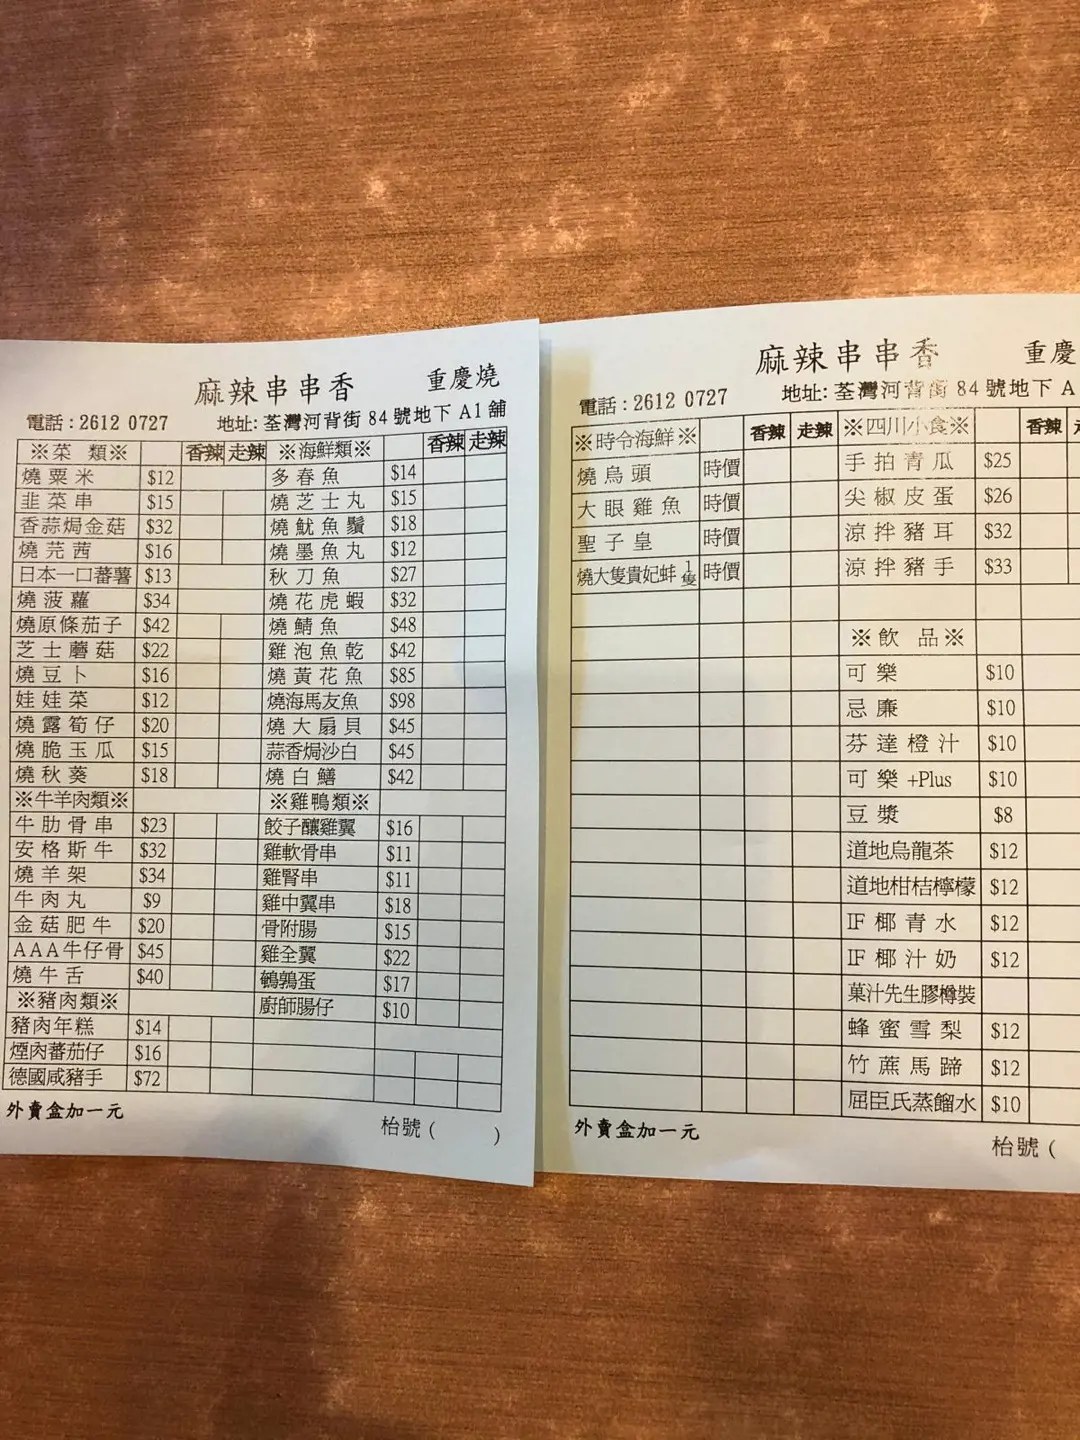 麻辣串串香 重慶燒
電話：2612 0727 地址: 荃灣河背街 84 號地下 A1 舖
※菜 類※ 香辣 走辣 ※海鮮類※ 香辣 走辣
燒粟米 $12 多春魚 $14
韭菜串 $15 燒芝士丸 $15
香蒜焗金菇 $32 燒魷魚鬚 $18
燒芫茜 $16 燒墨魚丸 $12
日本一口蕃薯 $13 秋刀魚 $27
燒菠蘿 $34 燒花虎蝦 $32
燒原條茄子 $42 燒鯖魚 $48
芝士蘑菇 $22 雞泡魚乾 $42
燒豆卜 $16 燒黃花魚 $85
娃娃菜 $12 燒海馬友魚 $98
燒露筍仔 $20 燒大扇貝 $45
燒脆玉瓜 $15 蒜香焗沙白 $45
燒秋葵 $18 燒白鱔 $42
※牛羊肉類※ ※雞鴨類※
牛肋骨串 $23 餃子釀雞翼 $16
安格斯牛 $32 雞軟骨串 $11
燒羊架 $34 雞腎串 $11
牛肉丸 $9 雞中翼串 $18
金菇肥牛 $20 骨附腸 $15
AAA牛仔骨 $45 雞全翼 $22
燒牛舌 $40 鵪鶉蛋 $17
※豬肉類※ 廚師腸仔 $10
豬肉年糕 $14
煙肉蕃茄仔 $16
德國咸豬手 $72
外賣盒加一元
枱號 ( )
麻辣串串香 重慶
電話：2612 0727 地址: 荃灣河背街 84 號地下 A
※時令海鮮※ 香辣 走辣 ※四川小食※ 香辣
燒烏頭 時價 手拍青瓜 $25
大眼雞魚 時價 尖椒皮蛋 $26
聖子皇 時價 涼拌豬耳 $32
燒大隻貴妃蚌 1隻 時價 涼拌豬手 $33
※飲 品※
可樂 $10
忌廉 $10
芬達橙汁 $10
可樂 +Plus $10
豆漿 $8
道地烏龍茶 $12
道地柑桔檸檬 $12
IF 椰青水 $12
IF 椰汁奶 $12
菓汁先生膠樽裝
蜂蜜雪梨 $12
竹蔗馬蹄 $12
屈臣氏蒸餾水 $10
外賣盒加一元
枱號 (